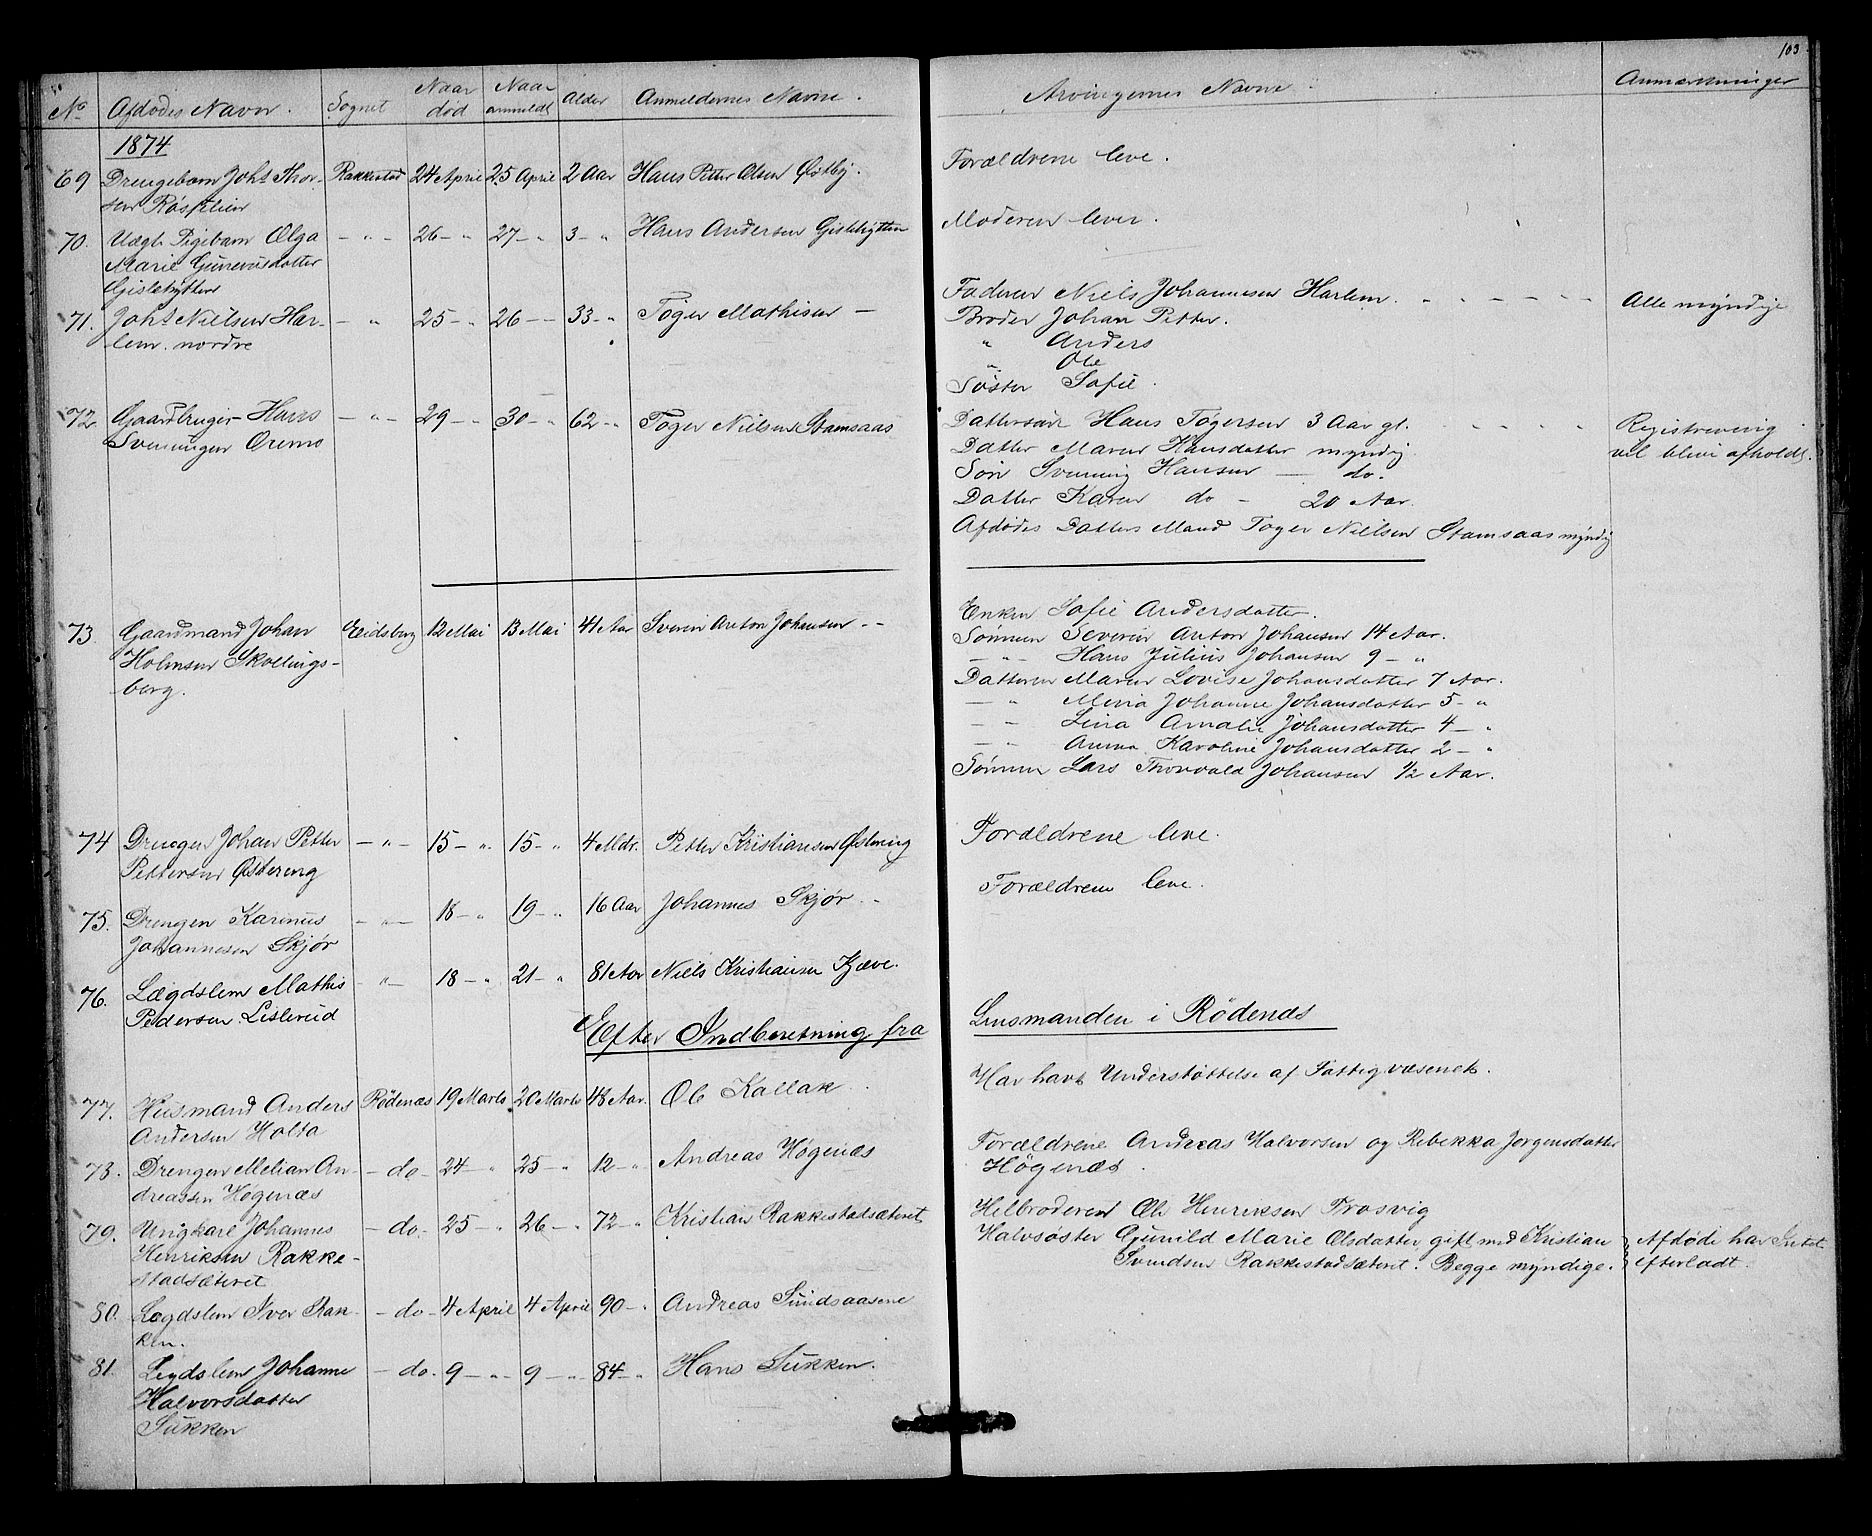 103
No Afdødes Navn. Sognet Naar død Naar anmeldt Alder Anmeldernes Navne. Arvingernes Navne. Anmærkninger
1874
69 Drengebarn Johs Thor- Rakkestad 24 April 25 April 2 Aar Hans Petter Olsen Østby. Forældrene leve.
sen
70. Uægte Pigebarn Olga - " - 26 - " 27 - " 3 - " Hans Andersen Gislehytten Moderen lever.
Marie Gunerusdatter
Gislehytten
71. Johs Nielsen Har- - " 25 - " 26 - - 33 - " Töger Mathisen - Faderen Niels Johannesen Harlem. - - - - - Alle myndige
lem. nordre Broder Johan Petter.
" Anders
" Ole
Söster Sofie.
72. Gaardbruger Hans - " - 29 - " 30 - " 62 - " Töger Nielsen Stamsaas Dattersön Hans Tögersen 3 Aar gl. - - - - - Registrering
Sveningsen Oremo Datter Maren Hansdatter myndig vil blive afholdt.
Sön Svening Hansen - do.
Datter Karen do - 20 Aar.
Afdödes Datters Mand Töger Nielsen Stamsaas myndig
73. Gaardmand Johan Eidsberg 12 Mai 13 Mai 41 Aar Sverin Anton Johansen - - Enken Sofie Andersdatter.
Holmsen Skollings- Sönnen Severin Anton Johansen 14 Aar.
berg. - " - Hans Julius Johansen 9 - "
Datteren Maren Lovise Johansdatter 7 Aar.
- " Mina Johanne Johansdatter 5 - "
- - Lina Amalie Johansdatter 4 - "
- - Anna Karoline Johansdatter 2 - "
Sönnen Lars Thorvald Johansen 1/2 Aar.
74 Drengen Johan Petter - " - 15 - " 15 - " 4 Mdr. Petter Kristiansen Østereng Forældrene leve.
Pettersen Østereng
75. Drengen Karenus - " - 18 - " 19 - " 16 Aar Johannes Skjør - - Forældrene leve.
Johannesen Skjør
76. Lægdslem Mathis - " - 18 - " 21 - " 81 Aar Niels Kristiansen
Pedersen Lislerud
Efter Indberetning fra Lensmanden i Rödenæs
77. Husmand Anders Rödenæs 19 Marts 20 Marts 48 Aar. Ole Kallak Har havt Understøttelse af Fattigvæsenet.
Andersen Holta
78. Drengen Melian An- - do - 24 - " 25 - " 12 - " Andreas Högenæs Forældrene Andreas Halvorsen og Rebekka Jörgensdatter
dreassen Högenæs Högenæs.
79. Ungkarl Johannes - do. 25 - " 26 - " 72 - " Kristian Rakkestadsæteret Helbroderen Ole Henriksen Trosvig
Henriksen Rakke- Halvsöster Gunild Marie Olsdatter gift med Kristian Afdöde har Intet
stadsæteret Svendsen Rakkestadsæteret. Begge myndige. efterladt.
80. Lægdslem Iver Rak- - do - 4 April 4 April 90 - " Andreas Sundsaasene
ken.
81. Legdslem Johanne - do. 9 - " - 9 - " 84 - " Hans Sukken.
Halvorsdatter
Sukken